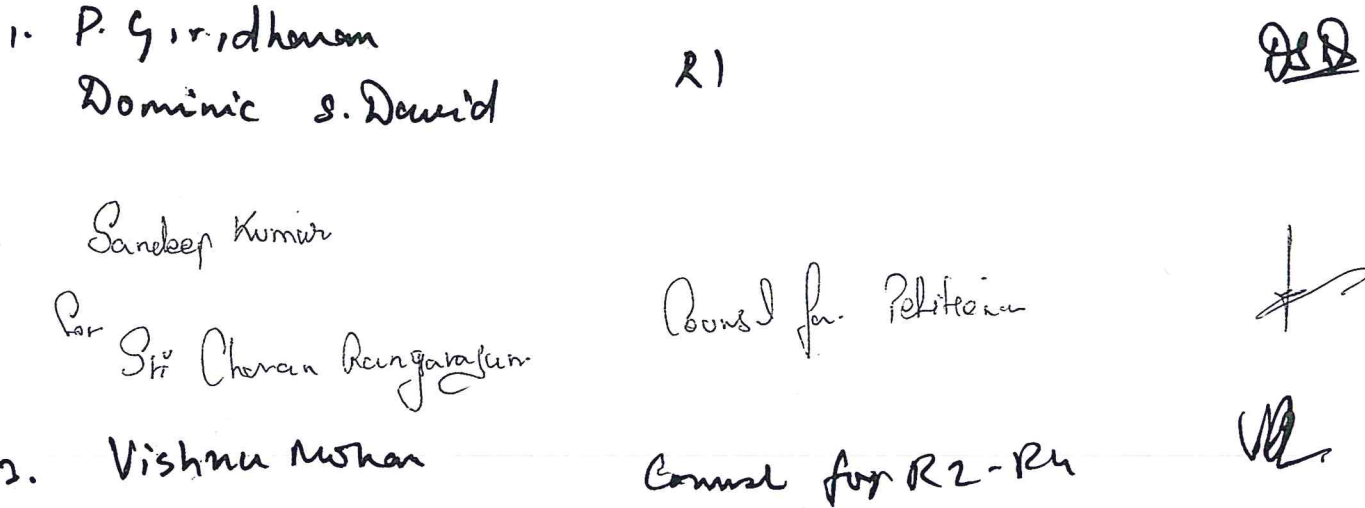 1. P. Giridharan
Dominic S. David
R1
Sandeep Kumar
For
Sri Charan Rangarajan
Counsel for Petitioner
3. Vishnu Mohan
Counsel for R2-R4